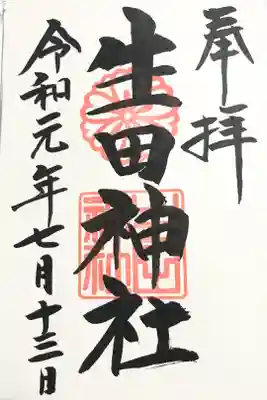 奉拝
生田神社
令和元年七月十三日